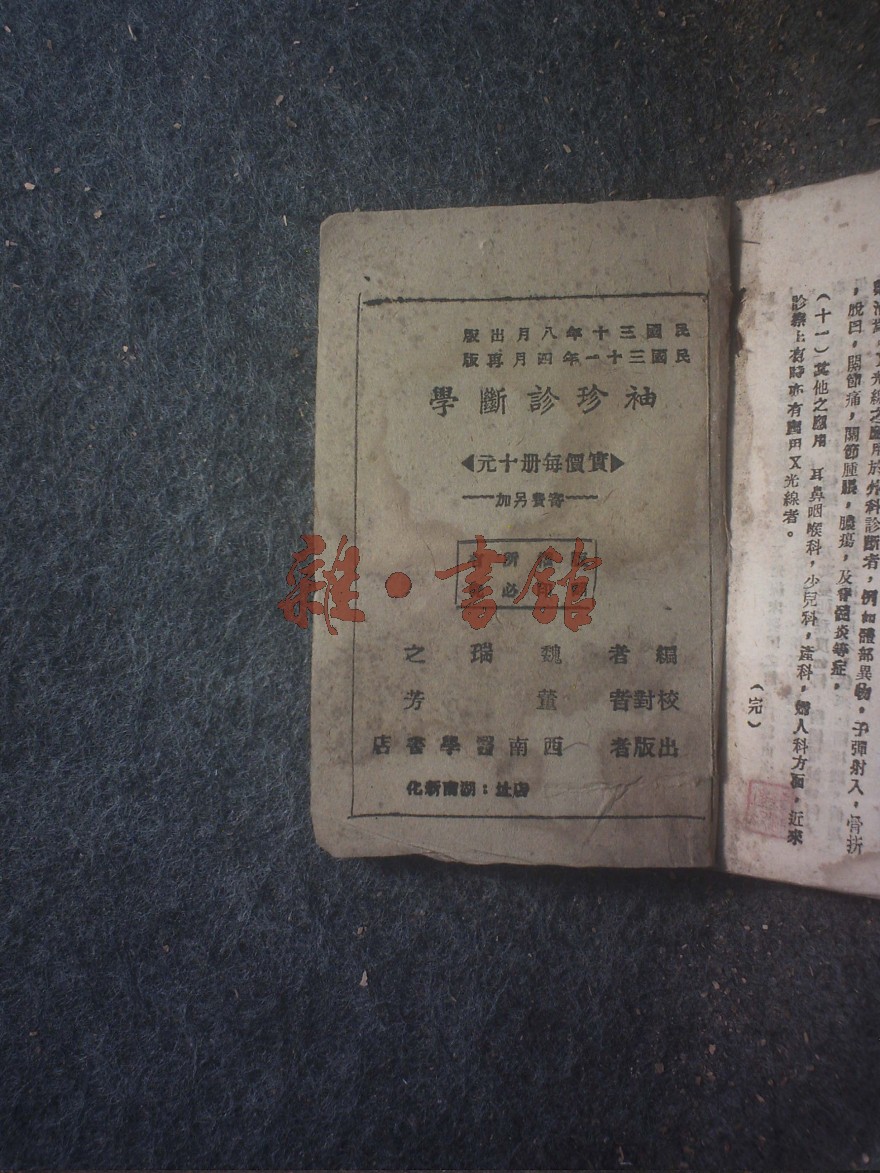 民國三十年八月出版
民國三十一年四月再版
袖珍診斷學
實價每册十元
寄費另加
所
必
編者 魏瑞之
校對者 董芳
出版者 西南醫學書店
店址：湖南新化
雜·書館
光線之應用於外科診斷者，例如體部異物，子彈射入，骨折
，脫臼，關節痛，關節腫脹，膿瘍，及骨髓炎等症。
（十一）其他之應用 耳鼻咽喉科，少兒科，產科，婦人科方面，近來
診療上有時亦有應用X光線者。
（完）